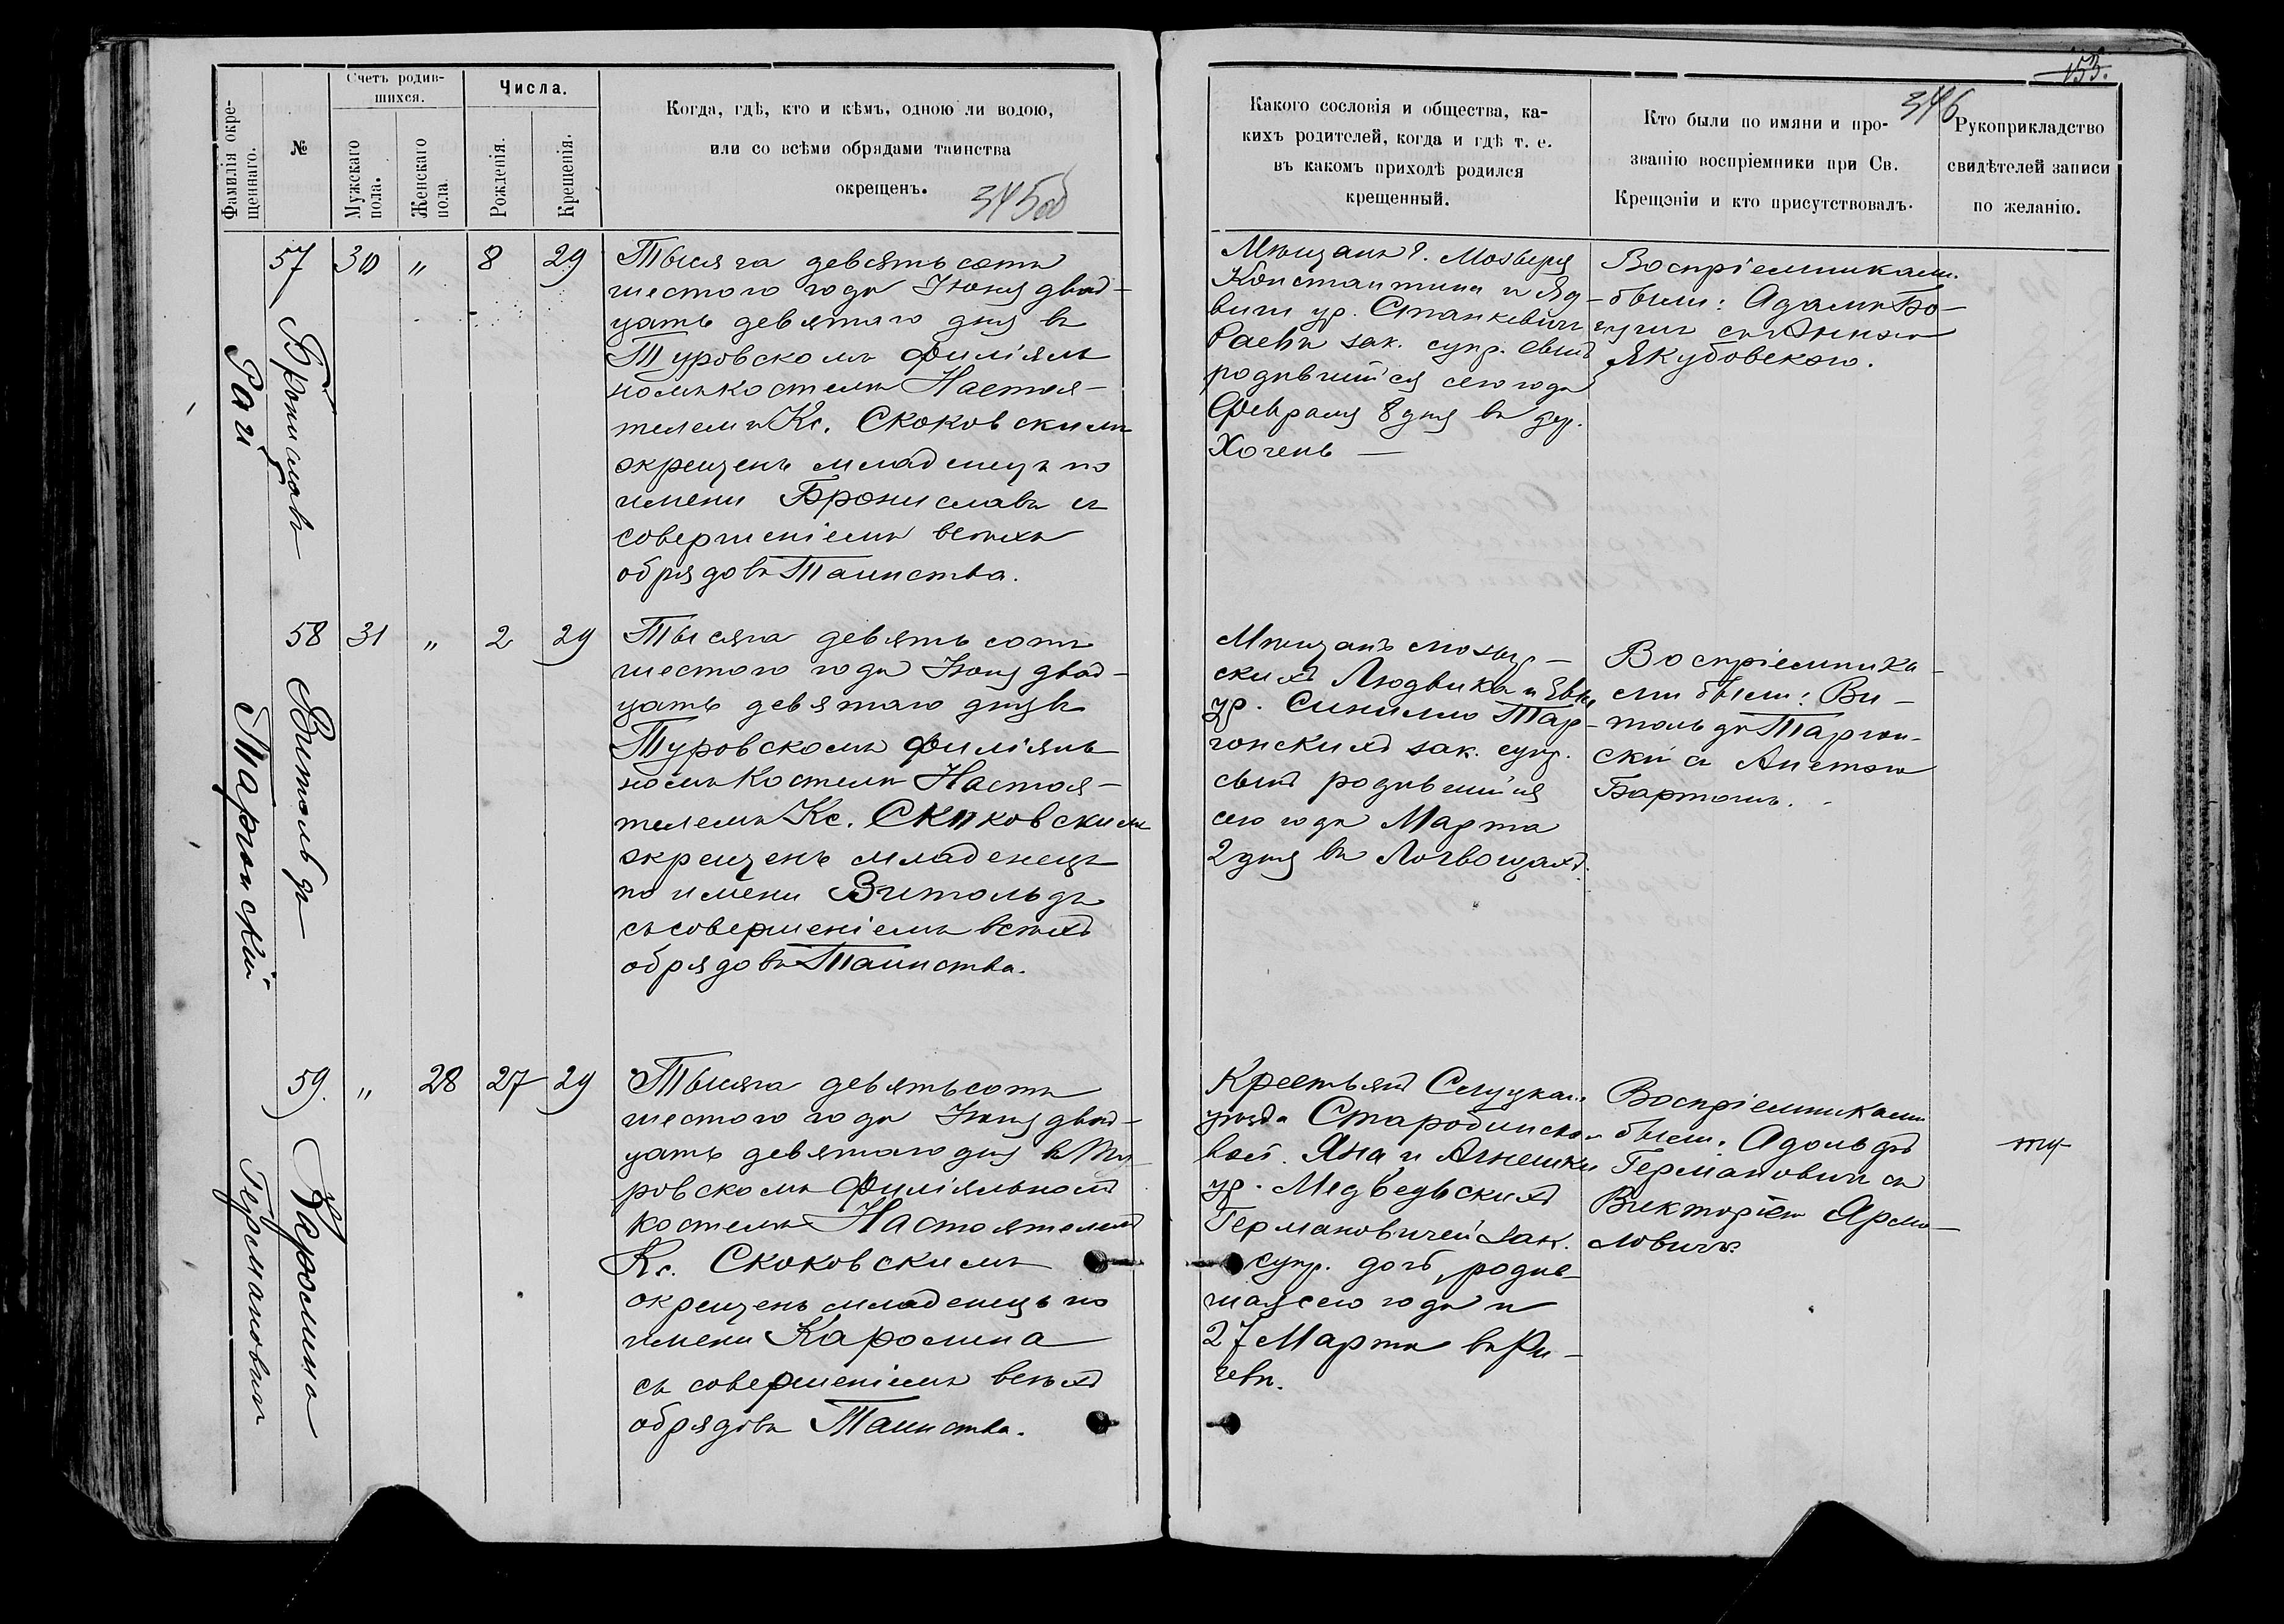 153.
346
Фамилія окре-
щеннаго.
№
Счетъ родив-
шихся.
Мужскаго
пола.
Женскаго
пола
Числа.
Рожденія.
Крещенія.
Когда, гдѣ, кто и кѣмъ, одною ли водою,
или со всѣми обрядами таинства
окрещенъ.
345об
Какого сословія и общества, ка-
кихъ родителей, когда и гдѣ т. е.
въ какомъ приходѣ родился
крещенный.
Кто были по имяни и про-
званію воспріемники при Св.
Крещэніи и кто присутствовалъ.
Рукоприкладство
свидѣтелей записи
по желанію.
57 30 " 8 29
Брониславъ
Рай
Тысяча девсять сотъ
шестого года Іюня двад-
цать девятаго дня въ
Туровскомъ филіяль
номъ костелѣ Настоя-
телемъ Кс. Скоковскимъ
окрещенъ младенецъ по
имени Брониславъ съ
совершеніемъ всѣхъ
обрядовъ Таинства.
Мѣщанъ г. Мозыря
Константина и Яд-
виги ур. Станкевичъ
Раевъ зак. супр. сынъ
родившійся сего года
Февраля 8 дня въ дер.
Хочень —
Воспріемниками
были: Адамъ Бо-
съ Анною
Якубовскою.
58 31 " 2 29
Витольдъ
Таргонскій
Тысяча девять сотъ
шестого года Іюня двад-
цать девятаго дня въ
Туровскомъ филіяль
номъ Костелѣ Настоя-
телемъ Кс. Скоковскимъ
окрещенъ младенецъ
по имени Витольдъ
съ совершеніемъ всѣхъ
обрядовъ Таинства.
Мѣщанъ мозыр-
скихъ Людвика и Евы
ур. Синилло Тар-
гонскихъ зак. супр.
сынъ родившійся
сего года Марта
2 дня въ Логвощахъ.
Воспріемника-
ми были: Ви-
тольдъ Таргон-
скій съ Анетою
Бартошъ.
59. " 28 27 29
Каролина
Германовичъ
Тысяча девятьсотъ
шестого года Іюня двад-
цать девятаго дня въ Ту-
ровскомъ Филіяльномъ
костелѣ Настоятелемъ
Кс. Скоковскимъ
окрещенъ младенецъ по
имени Каролина
съ совершеніемъ всѣхъ
обрядовъ Таинства.
Крестьянъ Слуцкаго
уѣзда Старобинской
вол. Яна и Агнешки
ур. Медведьскихъ
Германовичей зак.
супр. дочь, родив-
шаяся сего года
27 Марта въ Ри-
чевѣ.
Воспріемниками
были: Адольфъ
Германовичъ съ
Викторіею Ярмо-
ловичъ.